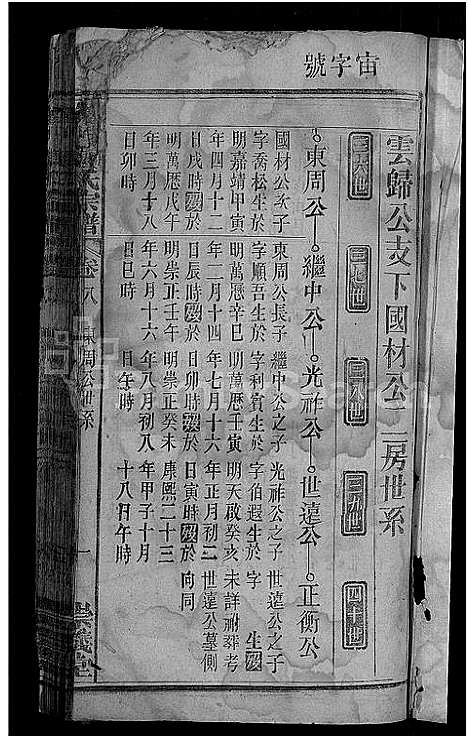 宙字號
雲歸公支下國材公二房世系
三六世
三七世
三八世
三九世
四十世
東周公
繼中公
光祚公
世遠公
正衡公
國材公次子
字喬松生於
明嘉靖甲寅
年四月十二
日戌時歿於
明萬歷戊午
年三月十八
日卯時
東周公長子
字順吾生於
明萬歷辛巳
年二月十四
日辰時歿於
明崇正壬午
年六月十六
日巳時
繼中公之子
字利賓生於
明萬歷壬寅
年七月十六
日卯時歿於
明崇正癸未
年八月初八
日午時
光祚公之子
字伯遐生於
明天啟癸亥
年正月初二
日寅時歿於
康熙二十三
年甲子十月
十八日午時
世遠公之子
字 生歿
未詳祔葬考
世遠公墓側
向同
氏宗譜
卷八
東周公世系
一
崇義堂